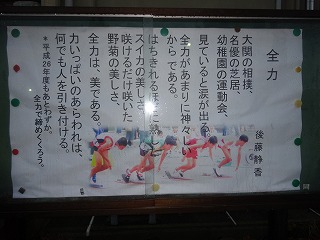 全力
後藤静香
大関の相撲、
名優の芝居、
幼稚園の運動会、
見ていると涙が出る。
全力があまりに神々しい
からである。
はちきれるほどに熟した
スイカの美しさ、
咲けるだけ咲いた
野菊の美しさ、
全力は、美である。
力いっぱいのあらわれは、
何でも人を引き付ける。
*平成26年度もあとわずか、
全力で締めくくろう。